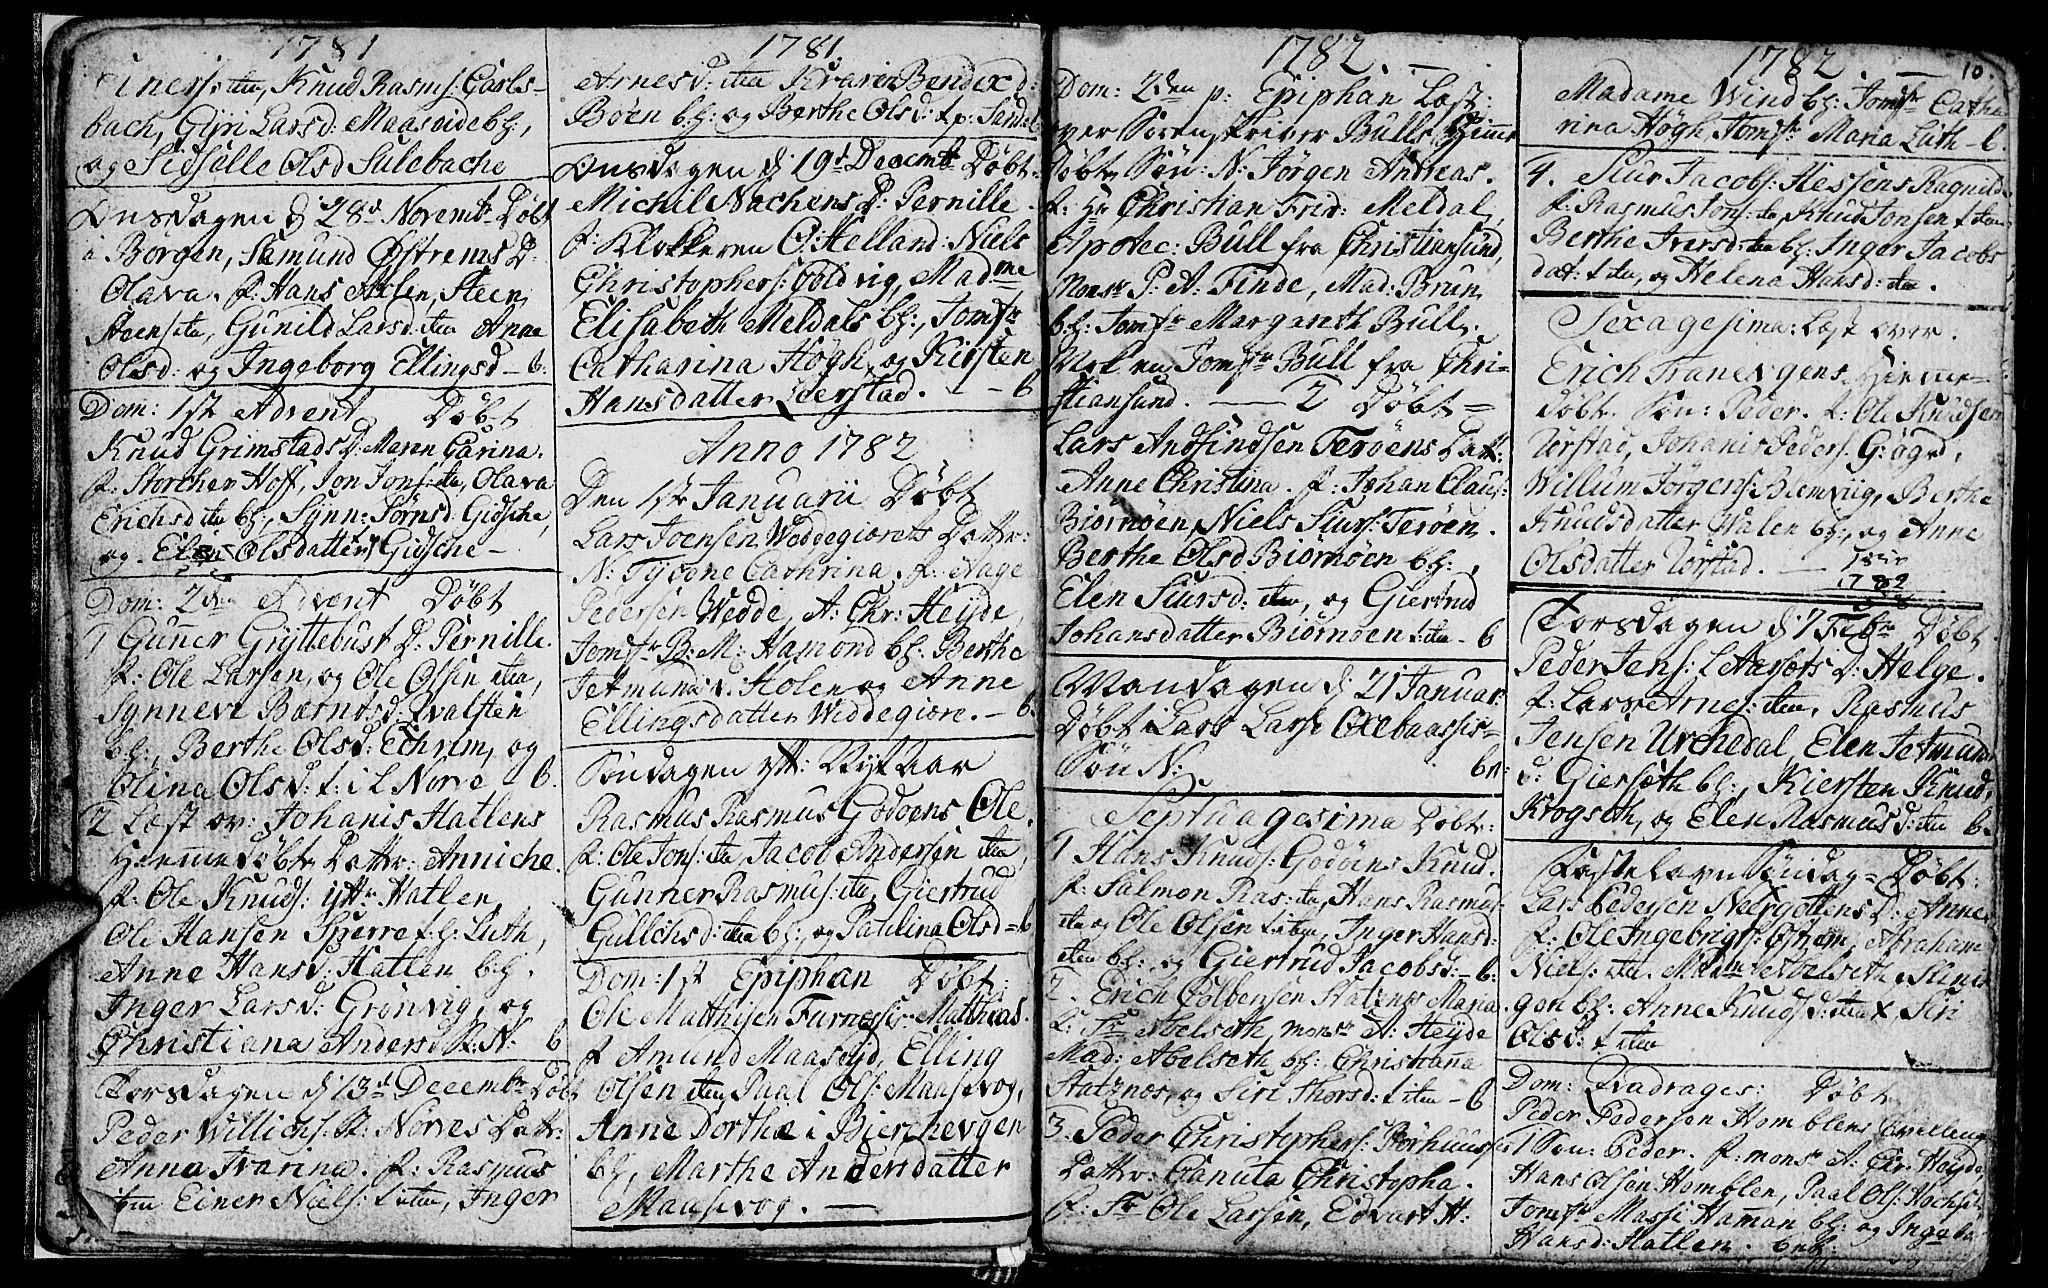 1781
Einers: iten, Knud Rasms: Carls-
bach, Gyri Larsd: Maasvide bh:,
og Sidselle Olsd Sulebache
Onsdagen d: 28d Novembr Døbt
i Borgen, Samund Østrems D:
Olava. f: Hans Aalen, Steen
iten, Gunild Larsd: iten Anne
Olsd: og Ingeborg Ellingsd - 6.
Dom: 1ste Advent Døbt
Knud Grimstads D: Maren Carina.
f: Storcher Hoff, Jon Jons: iten, Olava
Erichsd iten bh:, Synn: Sørnsd. Gidsche,
og Elen Olsdatter Gidsche -
Dom: 2den Advent Døbt
1 Gunner Gryttebust D: Pernille.
f: Ole Larsen, og Ole Olsen iten,
Synneve Bærnosd. Qvalsten
bh:, Berthe Olsd: Echrim, og
Olina Olsd: t: i L Norve 6.
2 Læst ov: Johanis Hatlens
Hiemmedøbt Dattr: Anniche.
f: Ole Knuds: ytt: Hatlen,
Ole Hansen Sperre t: h: Luth,
Anne Hansd: Hatlen bh:
Inger Larsd: Grønvig, og
Christiana Andersd R: N: 6
Torsdagen d: 13d Decembr Døbt
Peder Willichs: R: Norves Dattr:
Anna Ivarina. f: Rasmus
iten Einer Niels: t iten, Inger
1781
Arnesd: iten Karen Bendixd:
Bøen bh: og Berthe Olsd: t p: Sandal
Onsdagen d: 19d Decembr Døbt
Michil Nachens D: Pernille
f: Klokkeren O: Helland: Niels
Christophers: Voldvig, Madme
Elisabeth Meldals bh:, Jomfr
Catharina Høgh, og Kirsten
Hansdatter Iderstad. - 6
Anno 1782
Den 1ste Januarii Døbt
Lars Joensen Weddegiørets Dattr:
N: Tyvone Cathrina. f: Aage
Pedersen Wedde, A: Chr: Heyde,
Jomfr B: M: Hamond bh: Berthe
Jetmund: d: Holen og Anne
Ellingsdatter Weddegiøre. - 6.
Søndagen ytt: Nyt Aar
Rasmus Rasmus Godøens Ole.
f: Ole Jons: iten Jacob Andersen iten,
Gunner Rasmus: iten, Giertrud
Gullichsd: iten bh:, og Paulina Olsd = 6
Dom: 1st Epiphan Døbt:
Ole Matthisen Furnesses Matthias.
f Amund Maaseid, Elling
Olsen iten, Paal Ols: Maasevog,
Anne Dorthe i Bierchevgen
bh, Marthe Andersdatter
Maasevog. -
1782. -
Dom: 2den p: Epiphan Læst
over Sorenskriver Bulls Hiemme
Døbte Søn: N: Jørgen Andreas.
f: Hr Christian Frid: Meldal,
Apotec: Bull fra Christiansund,
Monsr P: A: Finde, Mad: Brun
bh: Jomfr Margareth Bull.
Jomfr Bull fra Chri-
stiansund. - 2 Døbt =
Lars Andfindsen Terøens Dattr:
Anne Christina. f: Johan Claus:
Biørnøen, Niels Siurs: Terøen.
Berthe Olsd Biørnøen bh:,
Elen Siursd: iten, og Giertrud
Johansdatter Biørnøen t: iten - 6
Mandagen d: 21 Januar:
Døbt Lars Larse Oxebaasis-
Søn N: 6n:
Septuagesima Døbt:
1 Hans Knuds: Godøens Knud.
f: Salmon Ras: iten, Hans Rasmus:
iten og Ole Olsen t iten, Inger Hansd:
iten bh:, og Giertrud Jacobsd: - 6:
2. Erich Colbensen Statnes Maria.
f: Sr Abelseth, monsr A: Heyde
Mad: Abelseth bh: Christiana
Statznos, og Siri Thorsd: t iten - 6
3. Peder Christophers: Storhuuses
Dattr: Canuta Christopha.
f: Sr Ole Larsen, Edvart H:
1782. - 10.
Madame Wind bh: Jomfr Catha
rina Høgh Jomfr Maria Luth - 6.
4. Siur Jacobs: Hessens Ragnilde
f: Rasmus Jons: iten, Knud Jonsen t iten
Berthe Iversd: iten bh: Inger Jacobs
dat: t iten, og Helena Hansd: iten.
Sexagesima: Læst over.
Erich Tranevgens Hiemme-
døbt. Søn: Peder. f: Ole Knudsen
Urstad, Johanis Peders: Gøgrd,
Willum Jørgens: Blomvig, Berthe
Knudsdatter Walen bh:, og Anne
Olsdatter Urstad. -
1782
Torsdagen d: 7 Febr Døbt.
Peder Jens: L Aarøts D: Helge.
f: Lars Arnes: iten, Rasmus
Jensen Urchedal, Elen Jetmunds
d: Gierseth bh:, Kiersten Knuds
Krogseth, og Elen Rasmusd: iten 6.
Fastelavn Søndag = Døbt:
Lars Pedersen Neergottens D: Anne.
f: Ole Ingebrigs: Osnem, Abraham
Niels: iten. Madm Abelseth Slini
gen bh: Anne Knudsd: iten & Siri
Olsd: t iten
Dom: Qvadrages: Døbt
Peder Pedersen Homblens Tvillinge
1 Søn: Peder. f: monsr A: Chr: Heyde,
Hans Olsen Homblen, Paal Ols: Hochsel
Jomfr Massi Haman bh: og Ingebor
Hansd: Hatlen. 6n: